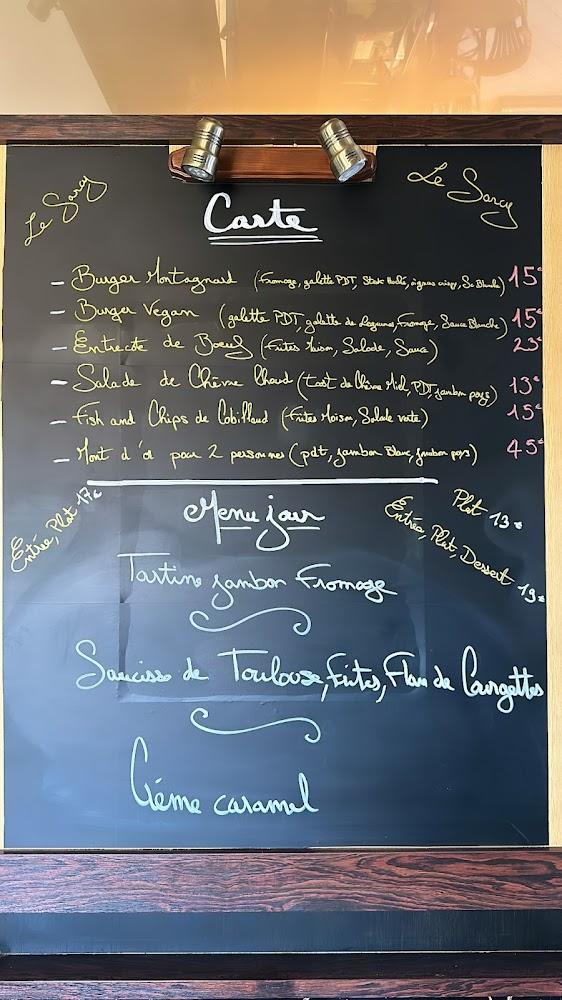 Le Sarcy
Le Sarcy
Carte
- Burger Montagnard (Fromage, galette PDT, Steak Haché, oignons crispy, Sc Blanche) 15€
- Burger Vegan (galette PDT, galette de Legumes, Fromage, Sauce Blanche) 15€
- Entrecote de Boeuf (Frites Maison, Salade, Sauce) 23€
- Salade de Chèvre Chaud (toast de Chèvre Miel, PDT, jambon pays) 13€
- Fish and Chips de Cabillaud (Frites Maison, Salade verte) 15€
- Mont d'or pour 2 personnes (pdt, jambon Blanc, jambon pays) 45€
Entrée, Plat 17€
Menu jour
Plat 13€
Entrée, Plat, Dessert 19€
Tartine jambon Fromage
Saucisse de Toulouse, frites, Flan de Courgettes
Crème caramel